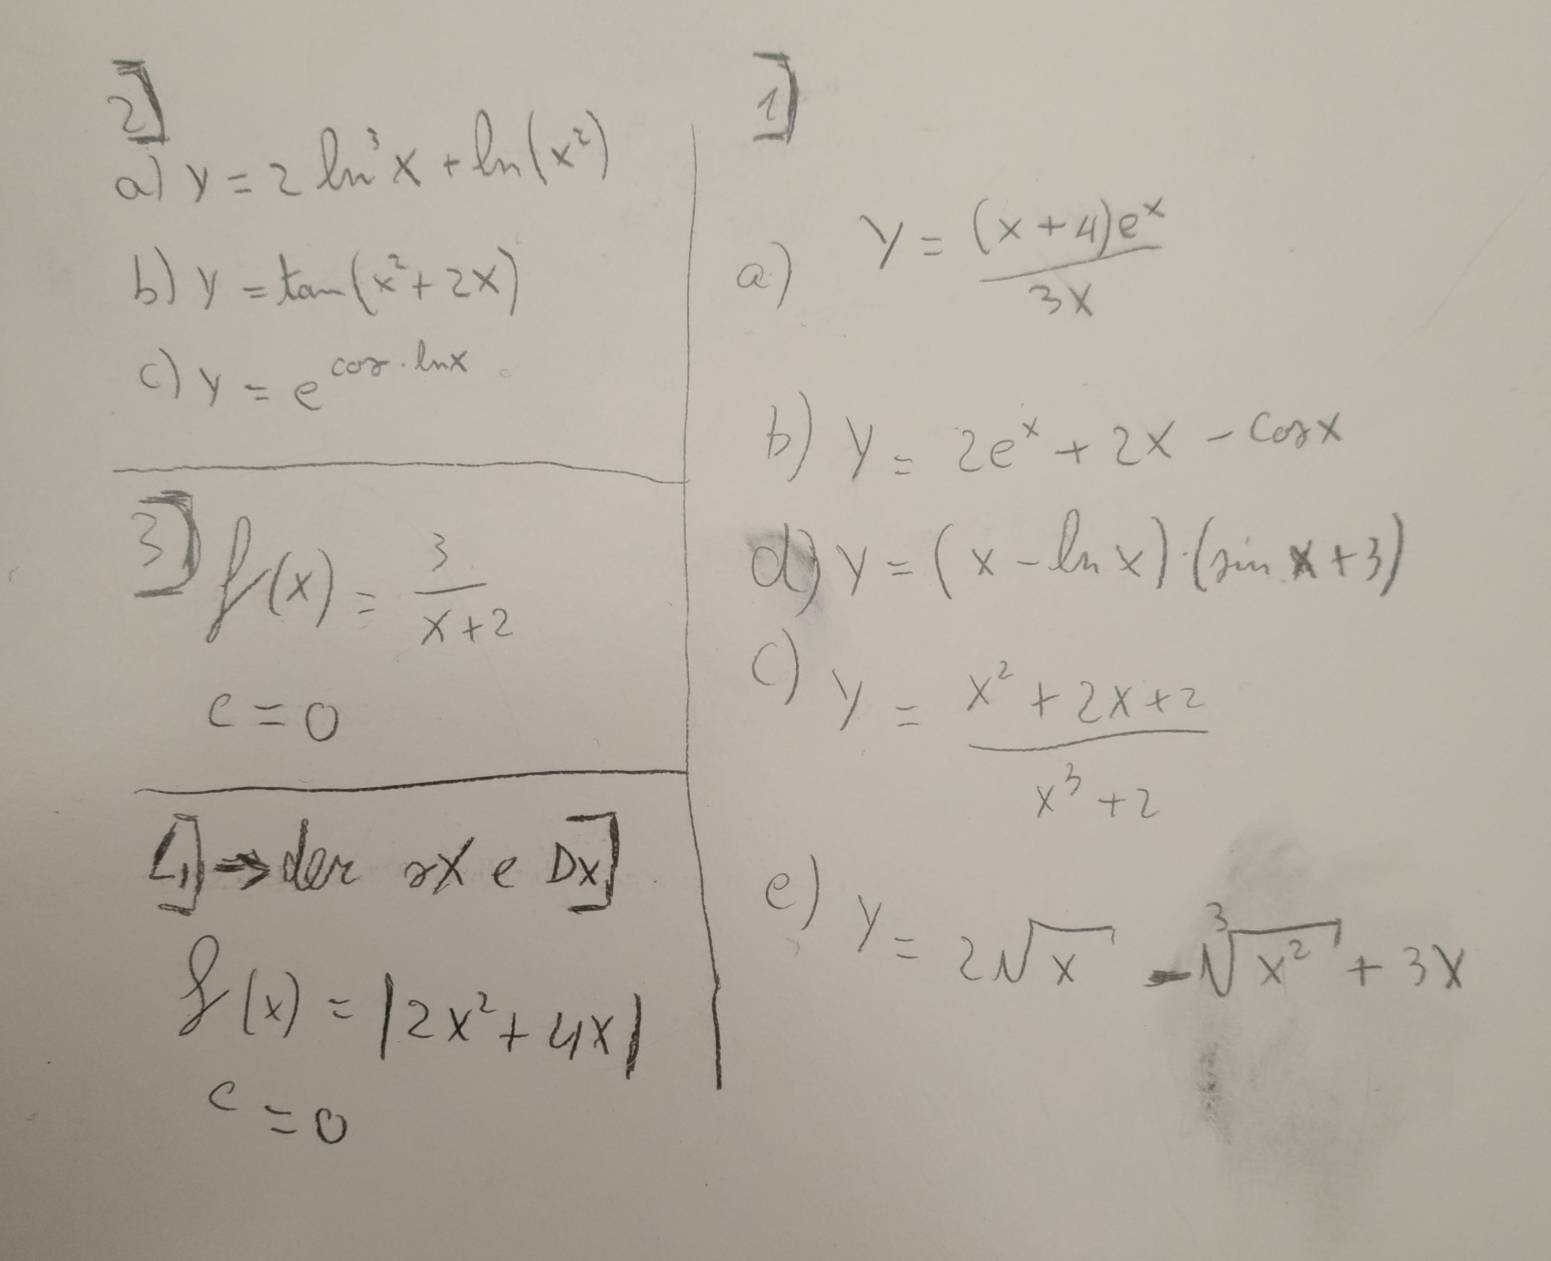 2]
a) y = 2 ln³x + ln(x²)
b) y = tan(x² + 2x)
c) y = e^(cos · lnx)
3] f(x) = 3/(x+2)
c = 0
4] → der sx e Dx]
f(x) = |2x² + 4x|
c = 0
1]
a) y = (x+4)eˣ/3x
b) y = 2eˣ + 2x - cosx
d) y = (x - ln x) · (sin x + 3)
c) y = (x² + 2x + 2)/(x³ + 2)
e) y = 2√x - ³√x² + 3x